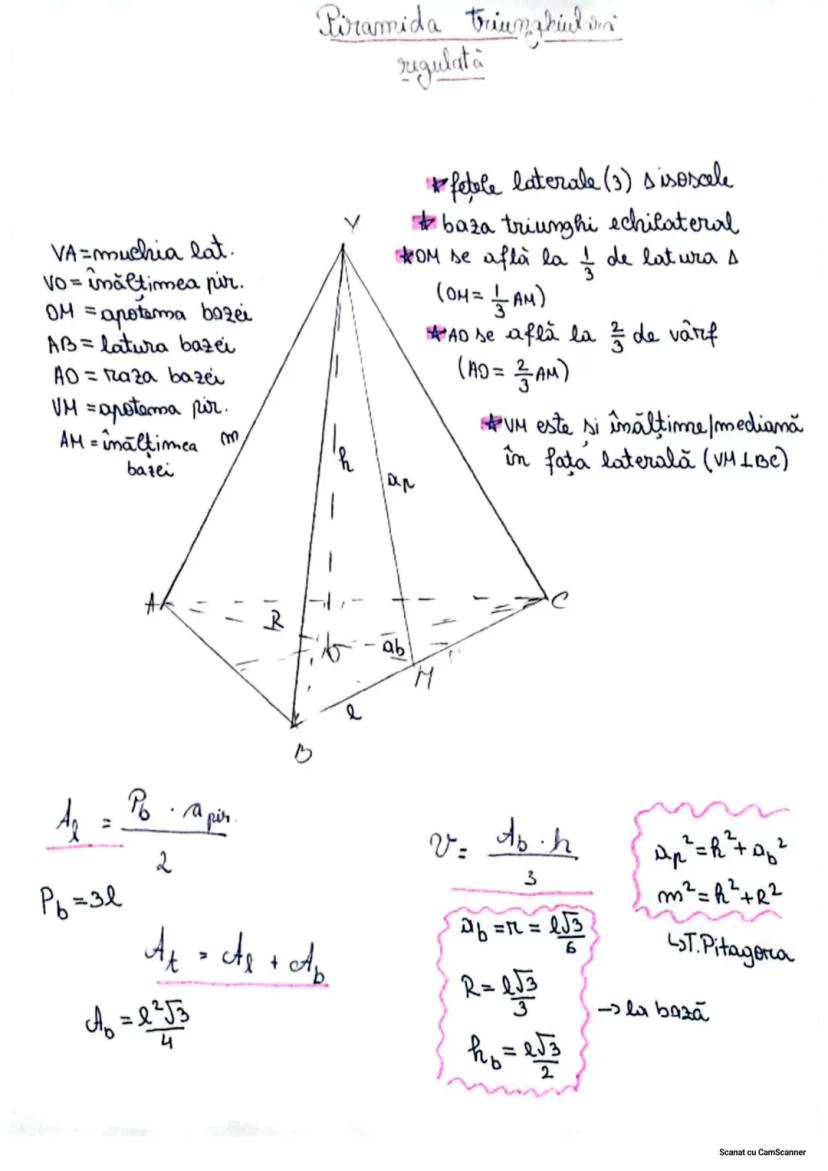 Piramida triunghiulară
regulată
VA=muchia lat.
VO=înălțimea pir.
OM=apotema bazei
AB=latura bazei
AO=raza bazei
VM=apotema pir.
AM=înălțimea
bazei
★fețele laterale(3) Δ isoscele
★ baza triunghi echilateral
★OM se află la 1/3 de latura Δ
(OM=1/3 AM)
★AO se află la 2/3 de vârf
(AO=2/3 AM)
★VM este și înălțime/mediană
în fața laterală (VM⊥BC)
V
m
h
ap
A
C
R
O
ab
M
l
B
A_l = P_b · a_pir. / 2
P_b=3l
A_t = A_l + A_b
A_b = l²√3/4
V = A_b · h / 3
a_b=r=l√3/6
R=l√3/3
h_b=l√3/2
→la bază
a_p²=h²+a_b²
m²=h²+R²
↳T.Pitagora
Scanat cu CamScanner